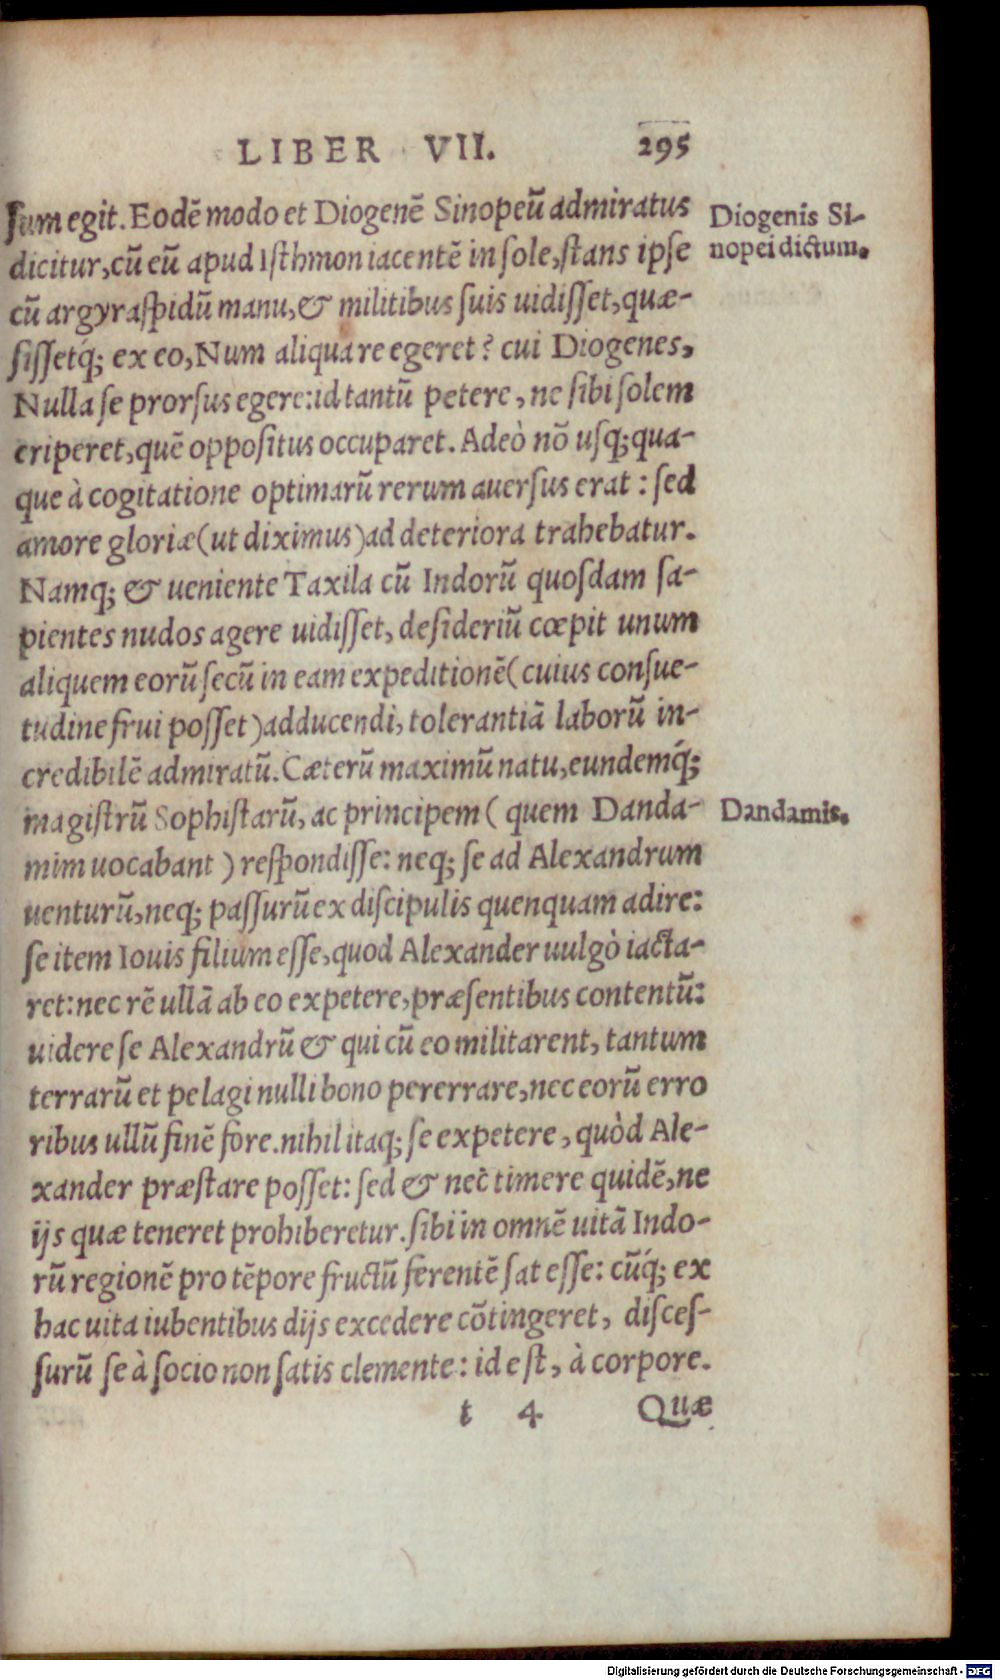 LIBER VII. 295
sum egit. Eodē modo et Diogenē Sinopeū admiratus
Diogenis Si-
nopei dictum.
dicitur, cū eū apud Isthmon iacentē in sole, stans ipse
cū argyraspidū manu, & militibus suis uidisset, quæ-
sissetq́; ex eo, Num aliqua re egeret? cui Diogenes,
Nulla se prorsus egere: id tantū petere, ne sibi solem
eriperet, quē oppositus occuparet. Adeò nō usq; qua-
que à cogitatione optimarū rerum auersus erat: sed
amore gloriæ (ut diximus) ad deteriora trahebatur.
Namq; & ueniente Taxila cū Indorū quosdam sa-
pientes nudos agere uidisset, desideriū cœpit unum
aliquem eorū secū in eam expeditionē (cuius consue-
tudine frui posset) adducendi, tolerantiā laborū in-
credibilē admiratū. Cæterū maximū natu, eundemq́;
magistrū Sophistarū, ac principem (quem Danda-
Dandamis.
mim uocabant) respondisse: neq; se ad Alexandrum
uenturū, neq; passurū ex discipulis quenquam adire:
se item Iouis filium esse, quod Alexander uulgò iacta-
ret: nec rē ullā ab eo expetere, præsentibus contentū:
uidere se Alexandrū & qui cū eo militarent, tantum
terrarū et pelagi nulli bono pererrare, nec eorū erro
ribus ullū finē fore. nihil itaq; se expetere, quòd Ale-
xander præstare posset: sed & nec timere quidē, ne
ijs quæ teneret prohiberetur. sibi in omnē uitā Indo-
rū regionē pro tēpore fructū ferentē sat esse: cūq́; ex
hac uita iubentibus dijs excedere cōtingeret, disces-
surū se à socio non satis clemente: id est, à corpore.
t 4 Quæ
Digitalisierung gefördert durch die Deutsche Forschungsgemeinschaft - DFG